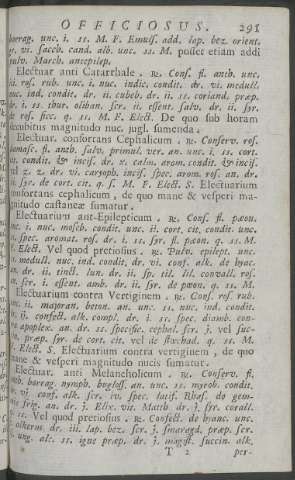 OFFICIOSUS. 291
borrag. unc. i. ss. M. F. Emuls. add. lap. bez. orient.
gr. vi. sacch. cand. alb. unc. ss. M. posset etiam addi
pulv. March. antepilep.
Electuar anti Catarrhale. ℞. Cons. fl. anth. unc.
ii. ros. rub. unc. i. nuc. indic. condit. dr. vi. medull.
nuc. ind. condit. dr. ii. cubeb. dr. ii. ss. coriand. præp.
dr. i. ss. thur. oliban. scr. ii. essent. salv. dr. ii. syr.
de ros. sicc. q. ss. M. F. Elect. De quo sub horam
decubitus magnitudo nuc. jugl. sumenda.
Electuar. confortans Cephalicum. ℞. Conserv. ros.
fl. anth. salv. primul. ver. an. unc. i. ss. cort.
condit. & incis. dr. x. calm. arom. condit. & incis.
z. z. dr. vi. caryoph. incis. spec. arom. ros. an. dr.
syr. de cort. cit. q. s. M. F. Elect. S. Electuarium
confortans cephalicum, de quo mane & vesperi ma-
gnitudo castaneæ sumatur.
Electuarium ant-Epilepticum. ℞. Cons. fl. pæon.
unc. i. nuc. mosch. condit. unc. ii. cort. cit. condit. unc.
spec. aromat. ros. dr. i. ss. syr. fl. pæon. q. ss. M.
F. Elect. Vel quod pretiosius. ℞. Pulv. epilept. unc.
medull. nuc. ind. condit. dr. vi. conf. alk. de hyac.
an. dr. ii. tinct. lun. dr. ii. sp. til. lil. convall. ros.
an. scr. i. essent. amb. dr. ii. syr. de pæon. q. ss. M.
Electuarium contra Vertiginem. ℞. Cons. ros. rub.
majoran. beton. an. unc. ss. nuc. ind. condit.
confect. alk. compl. dr. i. ss. spec. diamb. con-
apoplex. an. dr. ss. specific. cephal. scr. j. vel suc-
præp. syr. de cort. cit. vel de stœchad. q. ss. M.
F. Elect. S. Electuarium contra vertiginem, de quo
mane & vesperi magnitudo nucis sumatur.
Electuar. anti Melancholicum. ℞. Conserv. fl.
borrag. nymph. buglos. an. unc. ss. myrob. condit.
vi. conf. alk. scr. iv. spec. lætif. Rhas. de gem-
frig. an. dr. j. Elix. vit. Matth. dr. j. syr. corall.
ss. Vel quod pretiosius. ℞. Confect. de hyanc. unc.
dr. iii. lap. bez. scr. j. smaragd. præp. scr.
ung. alc. ss. igne præp. dr. j. magist. succin. alk.
T 2 per-